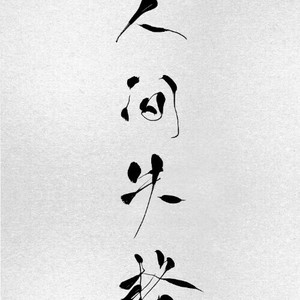 人间失格